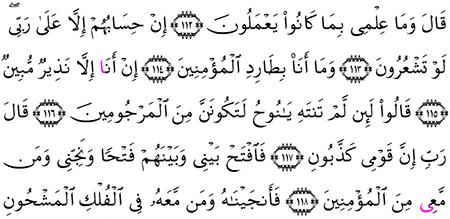 قَالَ وَمَا عِلْمِى بِمَا كَانُوا۟ يَعْمَلُونَ ﴿١١٢﴾ إِنْ حِسَابُهُمْ إِلَّا عَلَىٰ رَبِّى ۖ
لَوْ تَشْعُرُونَ ﴿١١٣﴾ وَمَآ أَنَا۠ بِطَارِدِ ٱلْمُؤْمِنِينَ ﴿١١٤﴾ إِنْ أَنَا۠ إِلَّا نَذِيرٌ مُّبِينٌ
﴿١١٥﴾ قَالُوا۟ لَئِن لَّمْ تَنتَهِ يَٰنُوحُ لَتَكُونَنَّ مِنَ ٱلْمَرْجُومِينَ ﴿١١٦﴾ قَالَ
رَبِّ إِنَّ قَوْمِى كَذَّبُونِ ﴿١١٧﴾ فَٱفْتَحْ بَيْنِى وَبَيْنَهُمْ فَتْحًا وَنَجِّنِى وَمَن
مَّعِىَ مِنَ ٱلْمُؤْمِنِينَ ﴿١١٨﴾ فَأَنجَيْنَٰهُ وَمَن مَّعَهُۥ فِى ٱلْفُلْكِ ٱلْمَشْحُونِ